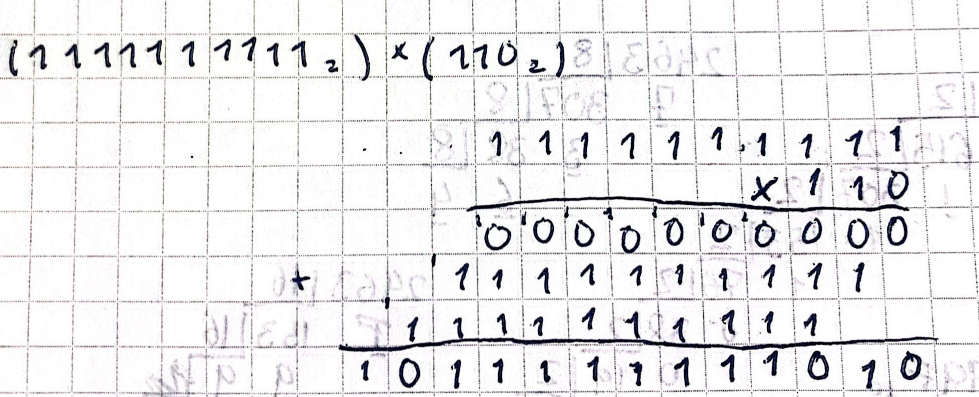 (1111111111₂) × (110₂)
1 1 1 1 1 1 1 1 1 1
× 1 1 0
0 0 0 0 0 0 0 0 0 0
+ 1 1 1 1 1 1 1 1 1 1
1 1 1 1 1 1 1 1 1 1
1 0 1 1 1 1 1 1 1 1 0 1 0